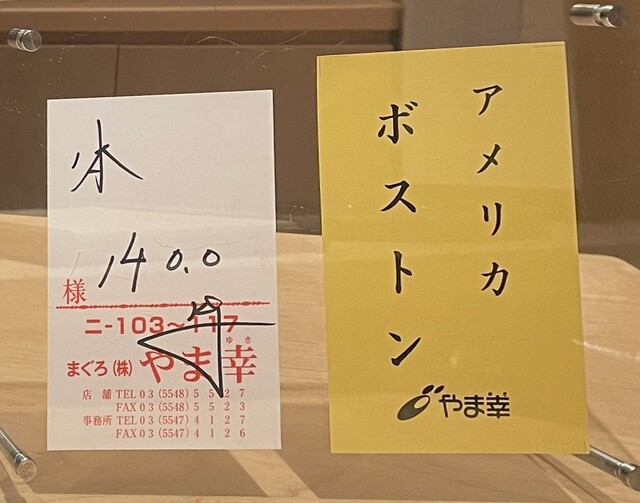 140.0
様
ニ-103〜117
まぐろ(株)やま幸
ゆき
店舗 TEL 03(5548)5527
FAX 03(5548)5523
事務所 TEL 03(5547)4127
FAX 03(5547)4126
アメリカ
ボストン
やま幸